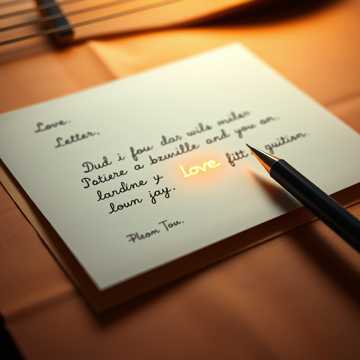 Love.
Letter,
Dud i fou das wils mules
Potiere a bzuille and you on.
landine y love fitt guition.
loun jay.
Pleom Tou.